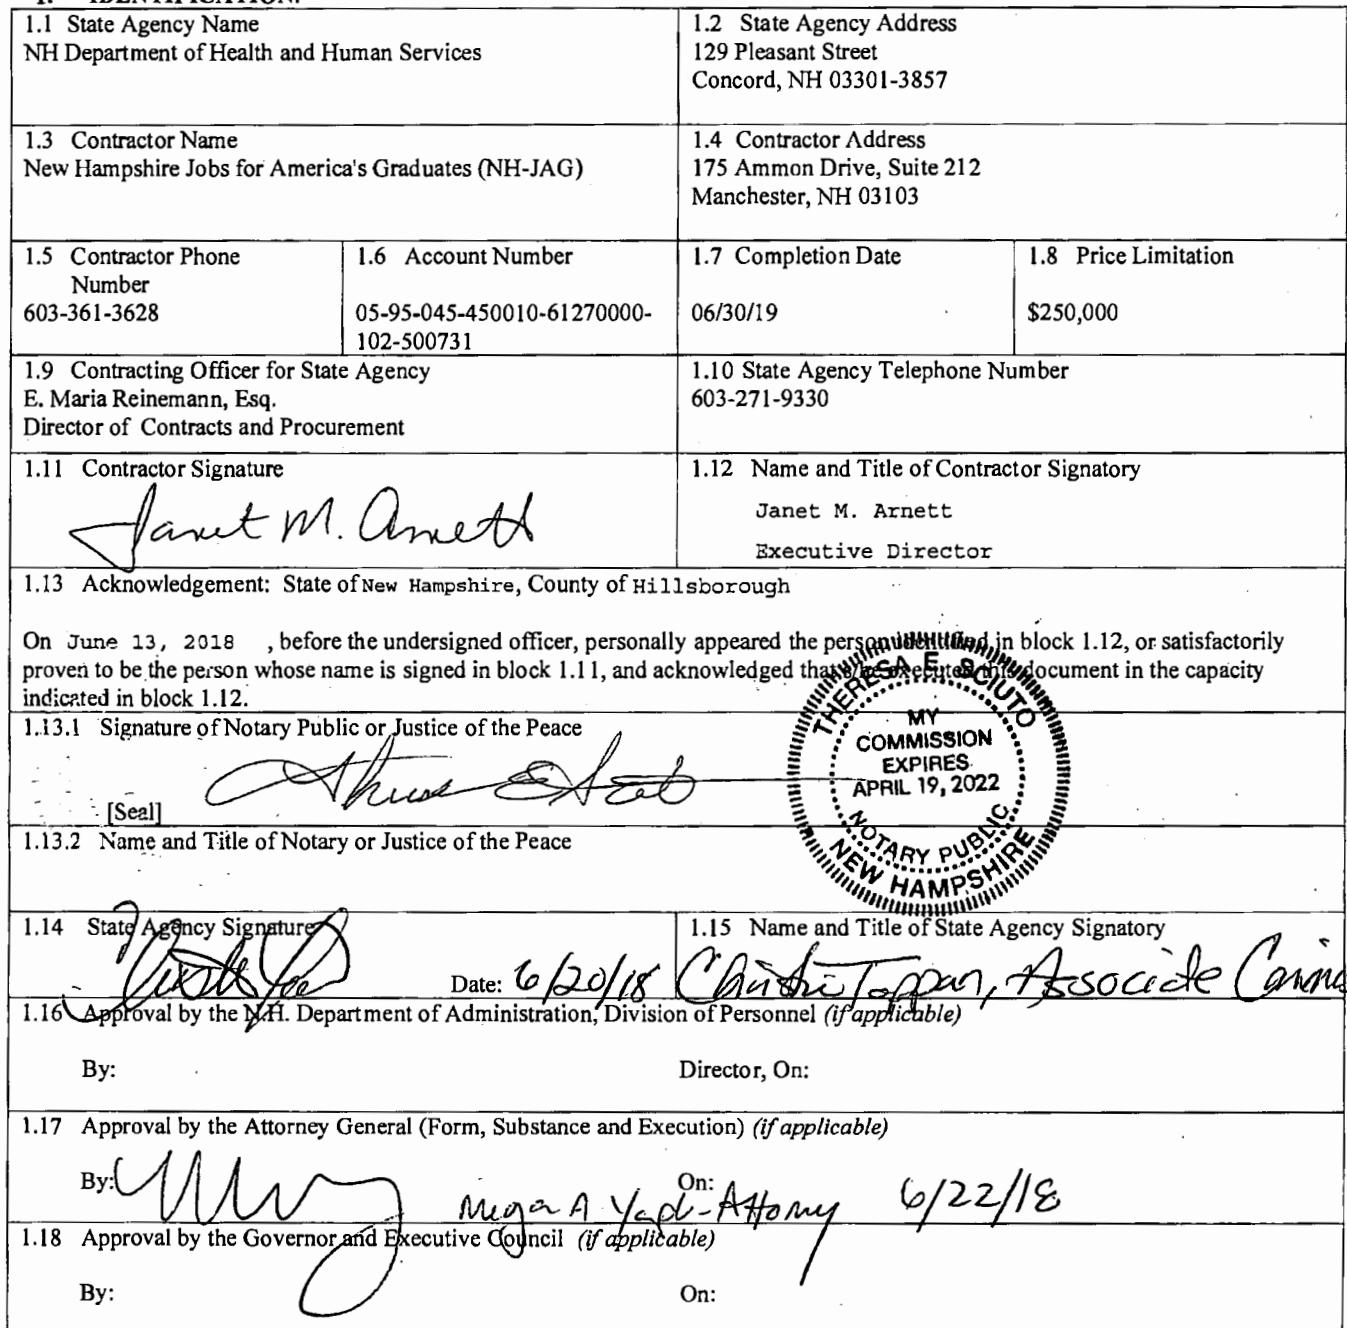 I. IDENTIFICATION.
1.1 State Agency Name
NH Department of Health and Human Services
1.2 State Agency Address
129 Pleasant Street
Concord, NH 03301-3857
1.3 Contractor Name
New Hampshire Jobs for America's Graduates (NH-JAG)
1.4 Contractor Address
175 Ammon Drive, Suite 212
Manchester, NH 03103
1.5 Contractor Phone
Number
603-361-3628
1.6 Account Number
05-95-045-450010-61270000-
102-500731
1.7 Completion Date
06/30/19
1.8 Price Limitation
$250,000
1.9 Contracting Officer for State Agency
E. Maria Reinemann, Esq.
Director of Contracts and Procurement
1.10 State Agency Telephone Number
603-271-9330
1.11 Contractor Signature
Janet M. Arnett
1.12 Name and Title of Contractor Signatory
Janet M. Arnett
Executive Director
1.13 Acknowledgement: State of New Hampshire, County of Hillsborough
On June 13, 2018 , before the undersigned officer, personally appeared the person identified in block 1.12, or satisfactorily
proven to be the person whose name is signed in block 1.11, and acknowledged that s/he executed this document in the capacity
indicated in block 1.12.
1.13.1 Signature of Notary Public or Justice of the Peace
[Seal]
THERESA E. SCIUTO
MY
COMMISSION
EXPIRES
APRIL 19, 2022
NOTARY PUBLIC
NEW HAMPSHIRE
1.13.2 Name and Title of Notary or Justice of the Peace
1.14 State Agency Signature
Date: 6/20/18
1.15 Name and Title of State Agency Signatory
Christine Tappan, Associate Comm
1.16 Approval by the N.H. Department of Administration, Division of Personnel (if applicable)
By: Director, On:
1.17 Approval by the Attorney General (Form, Substance and Execution) (if applicable)
By: On:
Megan A Attorney 6/22/18
1.18 Approval by the Governor and Executive Council (if applicable)
By: On: